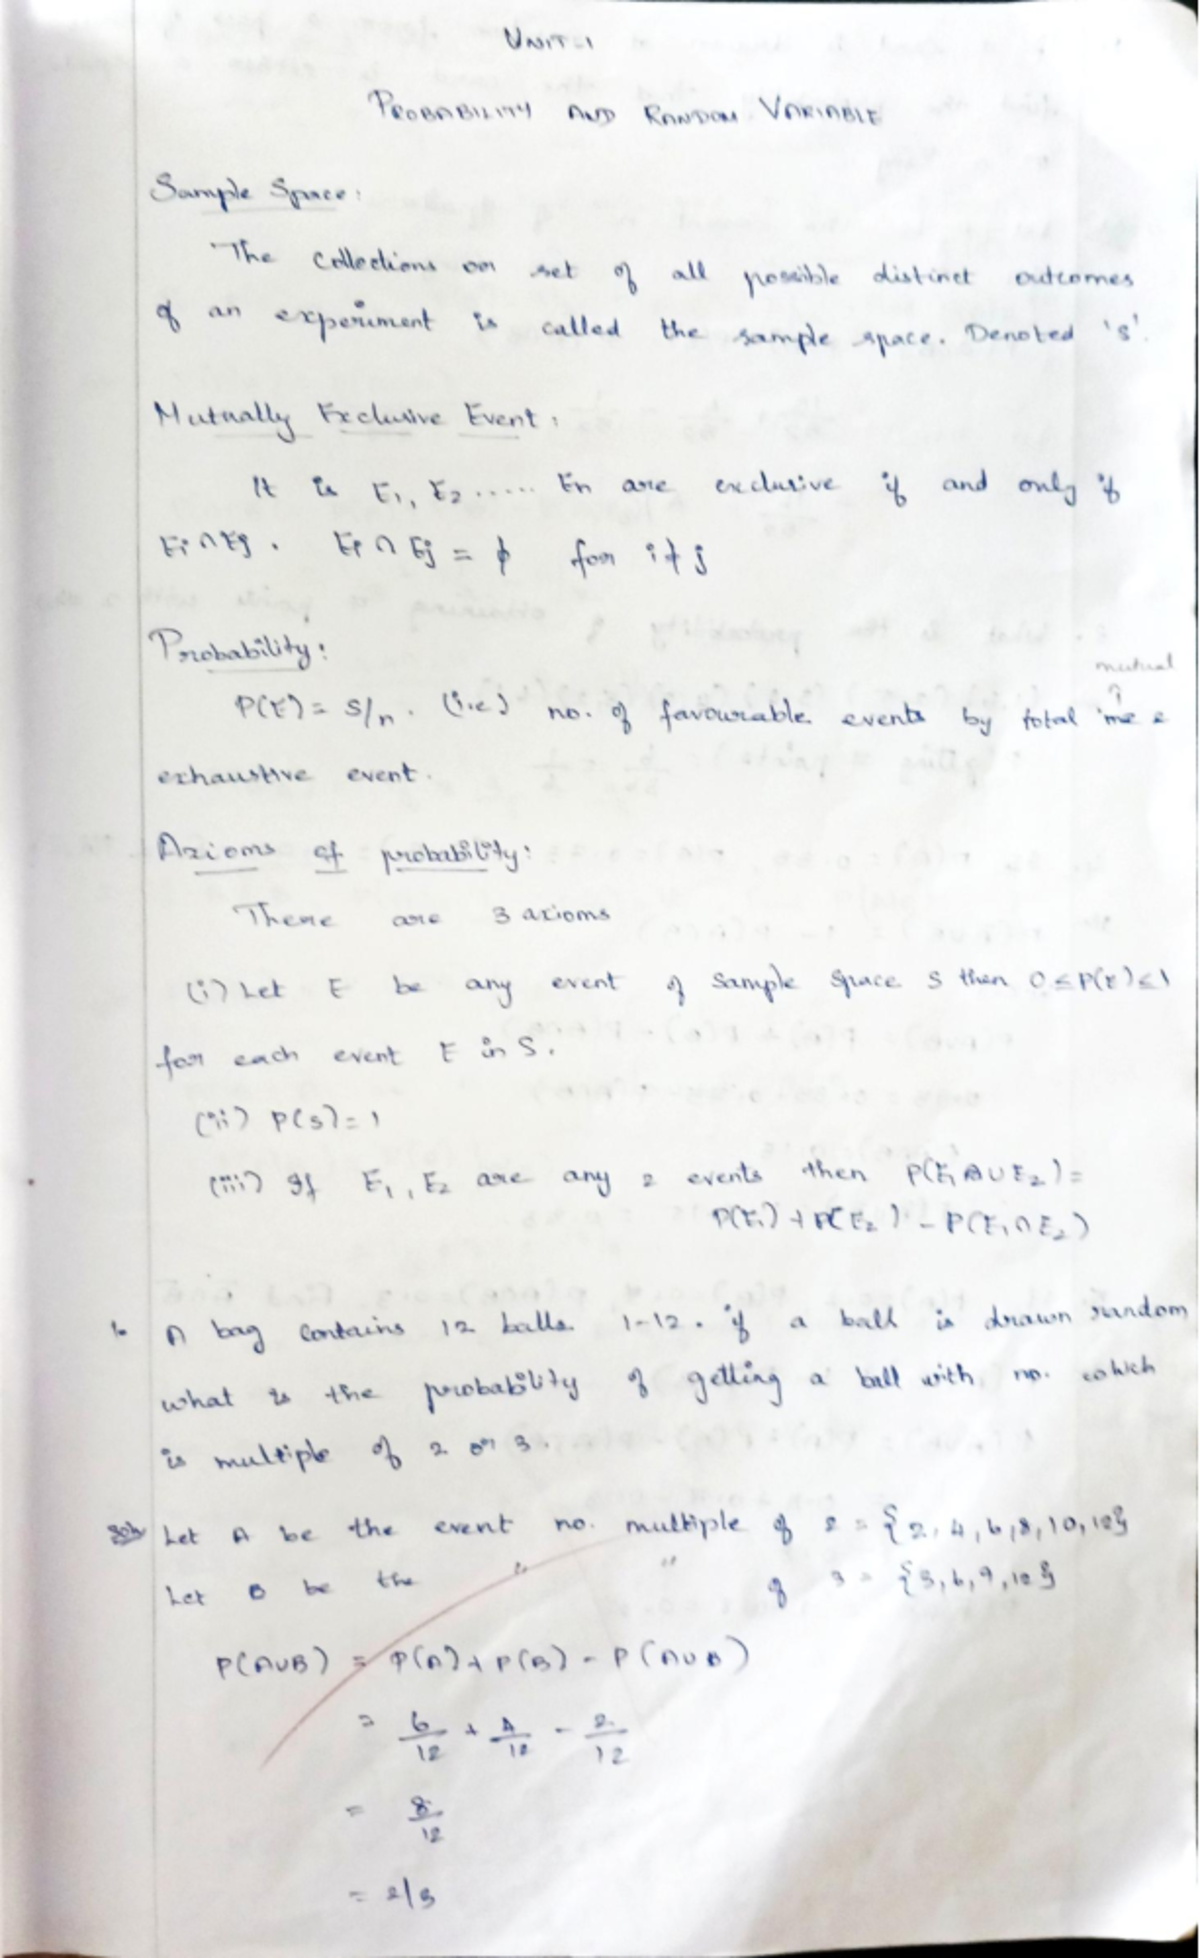 UNIT-1
PROBABILITY AND RANDOM VARIABLE
Sample Space:
The collections or set of all possible distinct outcomes
of an experiment is called the sample space. Denoted 's'.
Mutually Exclusive Event:
It is E₁, E₂ ..... En are exclusive if and only if
Ei ∩ Ej . Ei ∩ Ej = ϕ for i ≠ j
Probability:
mutual
P(E) = S/n . (i.e) no. of favourable events by total 'me e
exhaustive event.
Axioms of probability:
There are 3 axioms
(i) Let E be any event of sample space S then 0 ≤ P(E) ≤ 1
for each event E in S.
(ii) P(s) = 1
(iii) If E₁, E₂ are any 2 events then P(E₁ ∪ E₂) =
P(E₁) + P(E₂) - P(E₁ ∩ E₂)
1. A bag contains 12 balls 1-12. if a ball is drawn random
what is the probability of getting a ball with no. which
is multiple of 2 or 3.
Soln Let A be the event no. multiple of 2 = {2, 4, 6, 8, 10, 12}
Let B be the " " of 3 = {3, 6, 9, 12}
P(A∪B) = P(A) + P(B) - P(A∪B)
= 6/12 + 4/12 - 2/12
= 8/12
= 2/3